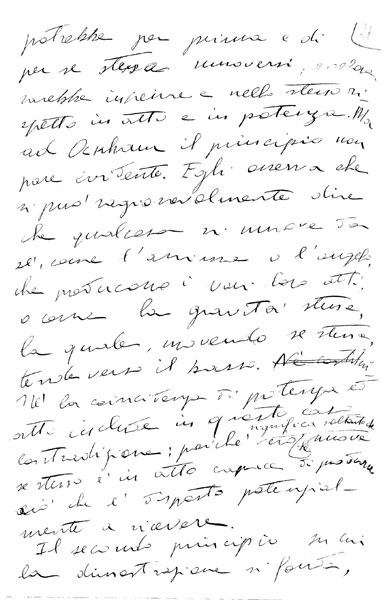 potrebbe per prima e di
per se stessa muoversi,
sarebbe insieme e nello stesso ri-
spetto in atto e in potenza. Ma
ad Ockham il principio non
pare evidente. Egli osserva che
si può ragionevolmente dire
che qualcosa si muove da
sé, come l'anima o l'angelo,
che producono i vari loro atti,
o come la gravità stessa,
la quale, movendo se stessa,
tende verso il basso.
Né la coincidenza di potenza ed
atto include in questo caso
contraddizione; poiché significa soltanto che
ciò che muove
se stesso è in atto capace di produrre
ciò che è disposto potenzial-
mente a ricevere.
Il secondo principio su cui
la dimostrazione si fonda,